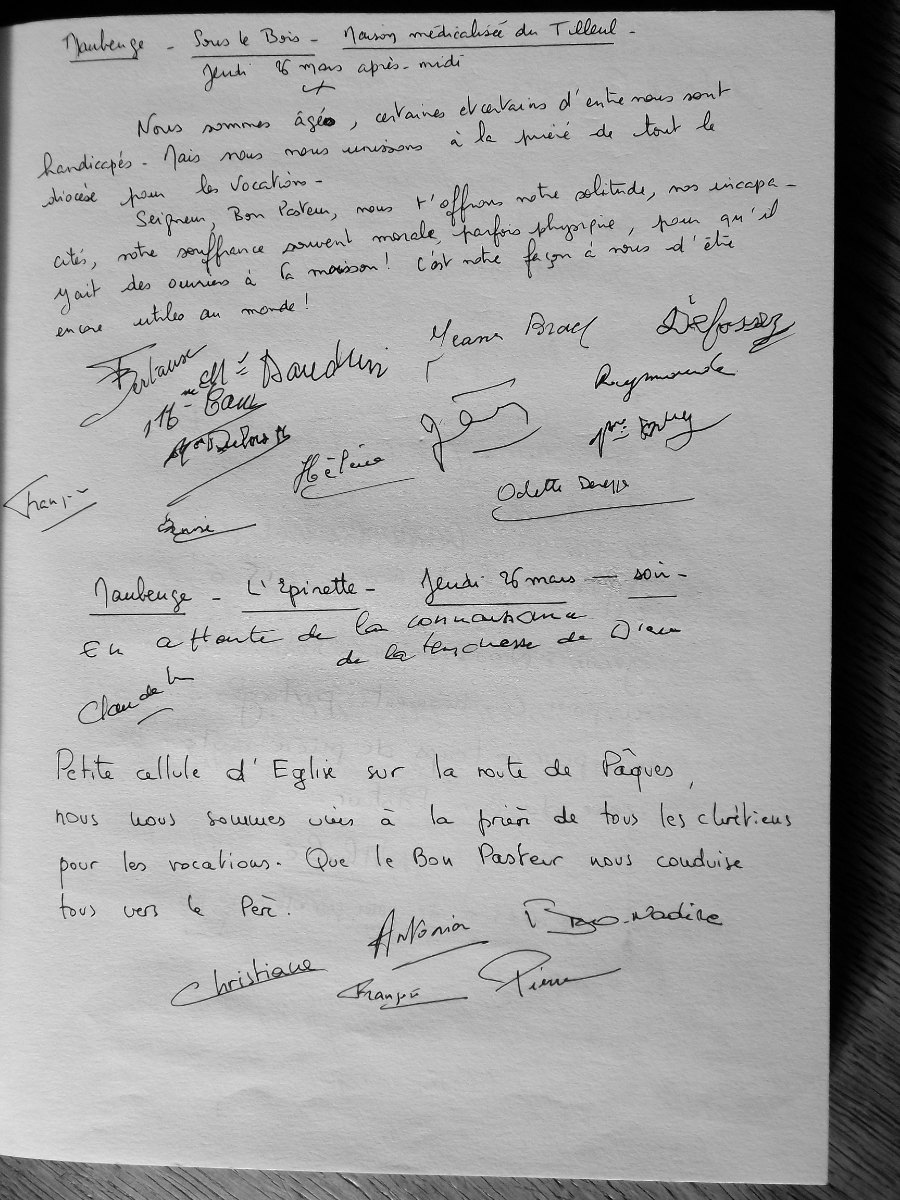 Maubenge - Sous le Bois - Maison médicalisée du Tilleul -
Jeudi 26 mars après-midi
Nous sommes âgés, certaines et certains d'entre nous sont
handicapés - Mais nous nous unissons à la prière de tout le
diocèse pour les vocations -
Seigneur, Bon Pasteur, nous t'offrons notre solitude, nos incapa-
cités, notre souffrance souvent morale, parfois physique, pour qu'il
y ait des ouvriers à la moisson ! C'est notre façon à nous d'être
encore utiles au monde !
Défossez
Mme Daudrin
Raymonde
Hélène
Odette
Françoise
Maubenge - L'Epinette - Jeudi 26 mars - soir -
En attente de la connaissance
de la tendresse de Dieu
Claude
Petite cellule d'Eglise sur la route de Pâques,
nous nous sommes unis à la prière de tous les chrétiens
pour les vocations. Que le Bon Pasteur nous conduise
tous vers le Père.
Antonia
Christiane
Pierre